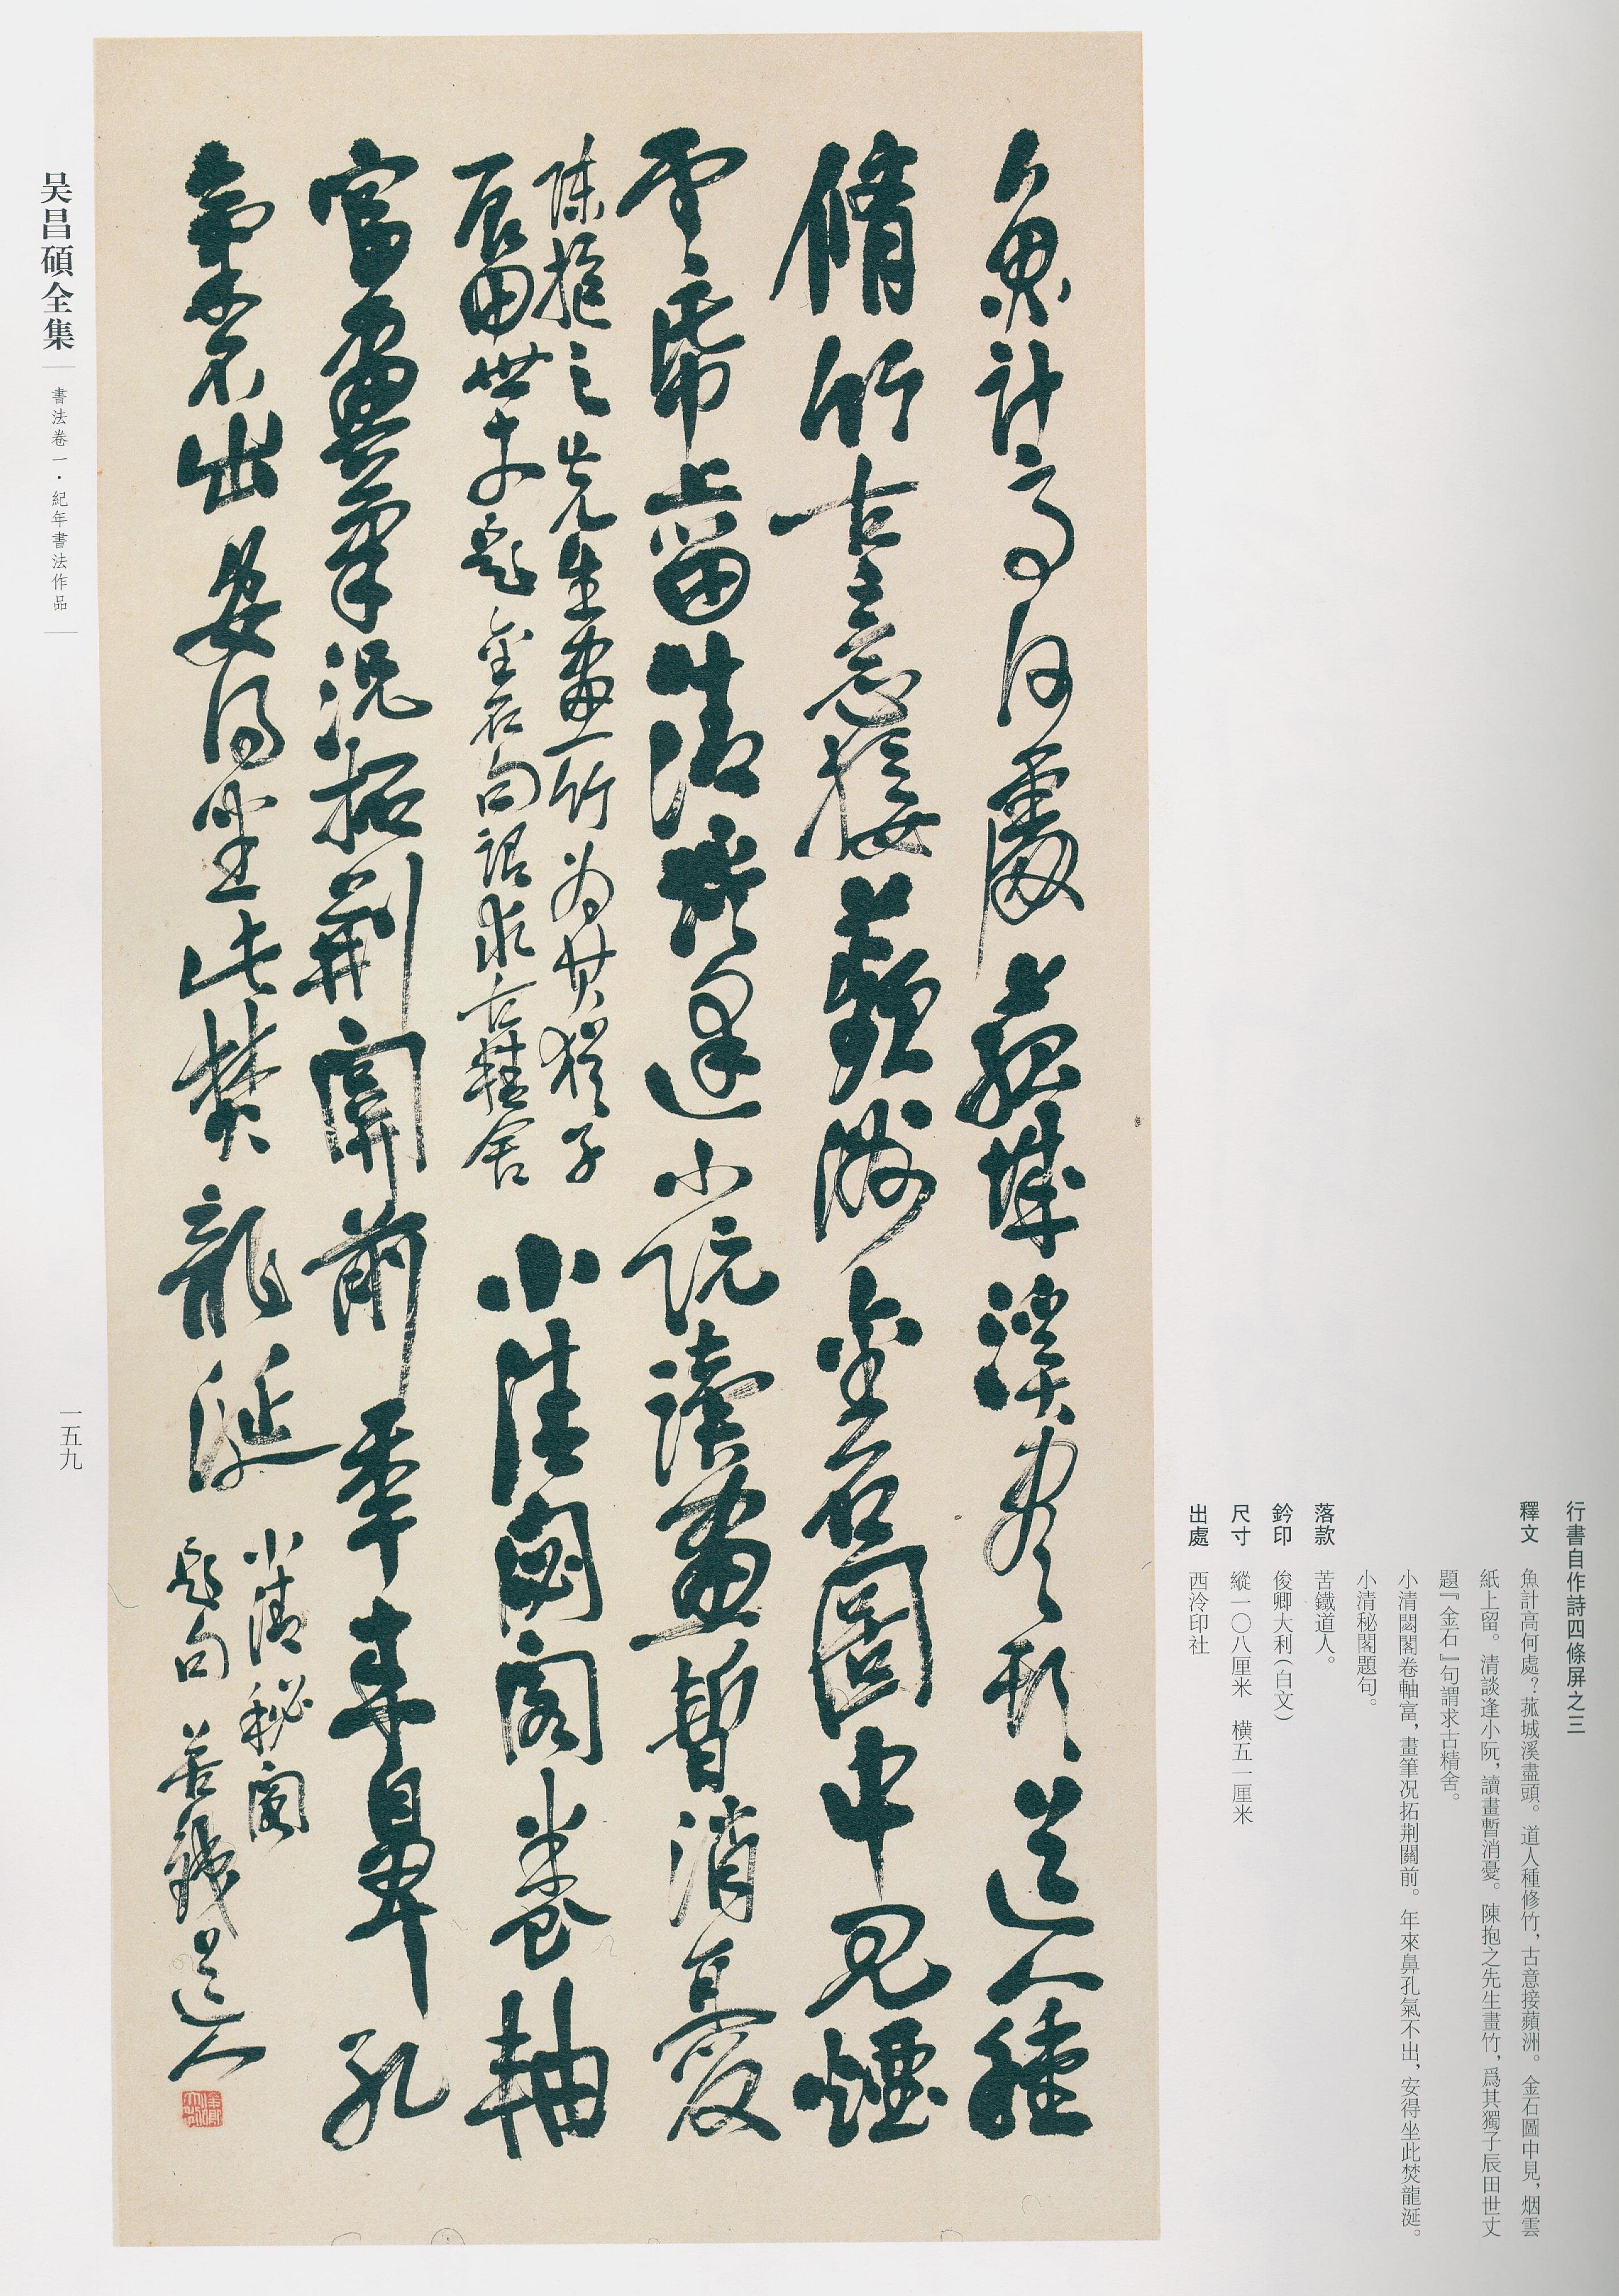 行書自作詩四條屏之三
釋文　魚計高何處？菰城溪盡頭。道人種修竹，古意接蘋洲。金石圖中見，烟雲
紙上留。清談逢小阮，讀畫暫消憂。陳抱之先生畫竹，爲其獨子辰田世丈
題『金石』句謂求古精舍。
小清閟閣卷軸富，畫筆况拓荆關前。年來鼻孔氣不出，安得坐此焚龍涎。
小清秘閣題句。
落款　苦鐵道人。
鈐印　俊卿大利（白文）
尺寸　縱一〇八厘米　橫五一厘米
出處　西泠印社
魚計高何處菰城溪盡頭道人種
脩竹古意接蘋洲金石圖中見煙
雲帋上留清談逢小阮讀畫暫消憂
陳抱之先生畫竹為其猶子
辰田世丈題金石句謂求古精舍
小清閟閣卷軸
富畫筆況拓荆關前年來鼻孔
氣不出安得坐此焚龍涎
小清秘閣
題句 苦鐵道人
吴昌碩全集
書法卷一・紀年書法作品
一五九